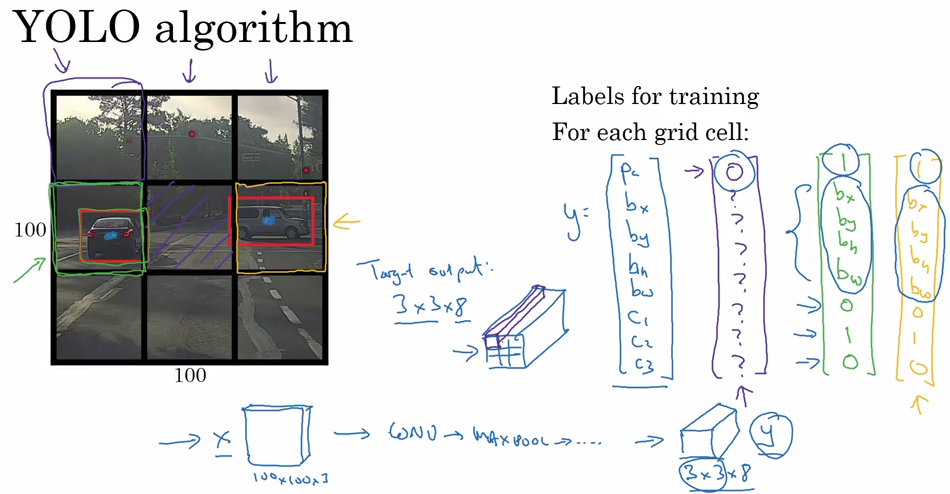 YOLO algorithm
100
100
Labels for training
For each grid cell:
y=
Pc
bx
by
bh
bw
C1
C2
C3
0
?
?
?
?
?
?
?
1
bx
by
bh
bw
0
1
0
1
bx
by
bh
bw
0
1
0
Target output:
3x3x8
X
100x100x3
CONV → MAXPOOL → .....
3x3x8
y